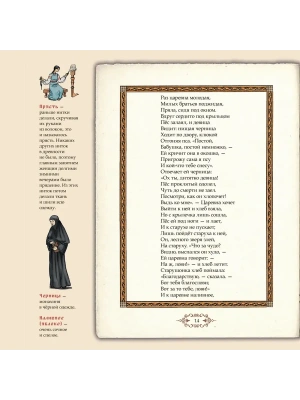 Прясть —
раньше нитки
делали, скручивая
их руками
из волокон, это
и называлось
прясть. Никаких
других ниток
в древности
не было, поэтому
главным занятием
женщин долгими
зимними
вечерами было
прядение. Из этих
ниток потом
делали ткань
и шили всю
одежду.
Черница —
монахиня
в чёрной одежде.
Наливное
(яблоко) —
очень сочное
и спелое.
Раз царевна молодая,
Милых братьев поджидая,
Пряла, сидя под окном.
Вдруг сердито под крыльцом
Пёс залаял, и девица
Видит: нищая черница
Ходит по двору, клюкой
Отгоняя пса. «Постой,
Бабушка, постой немножко, —
Ей кричит она в окошко, —
Пригрожу сама я псу
И кой-что тебе снесу».
Отвечает ей черница:
«Ох ты, дитятко девица!
Пёс проклятый одолел,
Чуть до смерти не заел.
Посмотри, как он хлопочет!
Выдь ко мне». — Царевна хочет
Выйти к ней и хлеб взяла,
Но с крылечка лишь сошла,
Пёс ей под ноги — и лает,
И к старухе не пускает;
Лишь пойдёт старуха к ней,
Он, лесного зверя злей,
На старуху. «Что за чудо?
Видно, выспался он худо, —
Ей царевна говорит: —
На ж, лови!» — и хлеб летит.
Старушонка хлеб поймала:
«Благодарствую, — сказала. —
Бог тебя благослови;
Вот за то тебе, лови!»
И к царевне наливное,
14